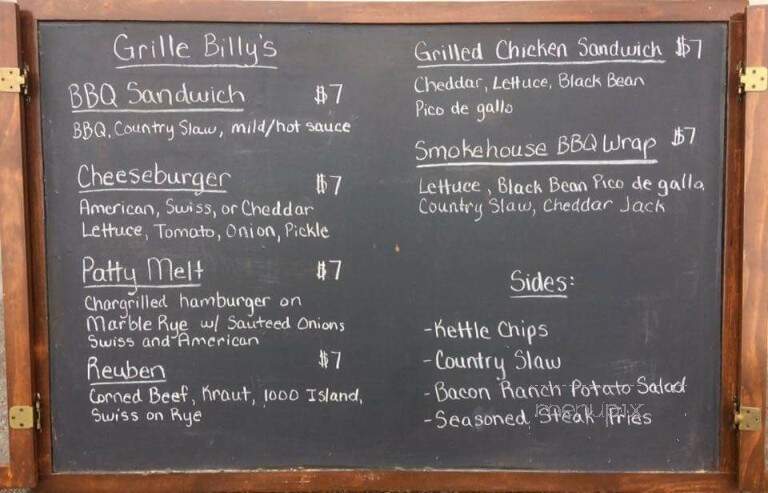 Grille Billy's
BBQ Sandwich $7
BBQ, Country Slaw, mild/hot sauce
Cheeseburger $7
American, Swiss, or Cheddar
Lettuce, Tomato, Onion, Pickle
Patty Melt $7
Chargrilled hamburger on
Marble Rye w/ Sauteed Onions
Swiss and American
Reuben $7
Corned Beef, Kraut, 1000 Island,
Swiss on Rye
Grilled Chicken Sandwich $7
Cheddar, Lettuce, Black Bean
Pico de gallo
Smokehouse BBQ Wrap $7
Lettuce, Black Bean Pico de gallo
Country Slaw, Cheddar Jack
Sides:
-Kettle Chips
-Country Slaw
-Bacon Ranch Potato Salad
-Seasoned Steak Fries
menupix